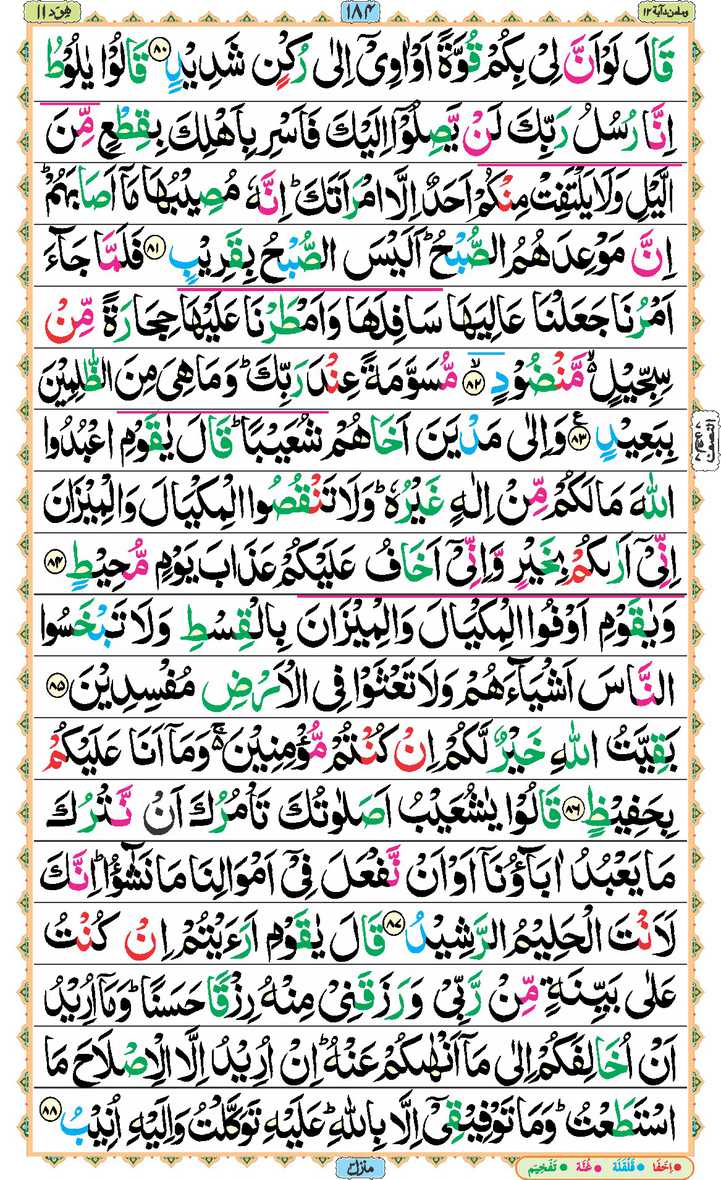 ومامن دآبة ١٢
١٨٤
هود ١١
قَالَ لَوْ اَنَّ لِیْ بِكُمْ قُوَّةً اَوْ اٰوِیْۤ اِلٰی رُكْنٍ شَدِیْدٍ ۝۸۰ قَالُوْا یٰلُوْطُ
اِنَّا رُسُلُ رَبِّكَ لَنْ یَّصِلُوْۤا اِلَیْكَ فَاَسْرِ بِاَهْلِكَ بِقِطْعٍ مِّنَ
الَّیْلِ وَلَا یَلْتَفِتْ مِنْكُمْ اَحَدٌ اِلَّا امْرَاَتَكَ ؕ اِنَّهٗ مُصِیْبُهَا مَاۤ اَصَابَهُمْ ؕ
اِنَّ مَوْعِدَهُمُ الصُّبْحُ ؕ اَلَیْسَ الصُّبْحُ بِقَرِیْبٍ ۝۸۱ فَلَمَّا جَآءَ
اَمْرُنَا جَعَلْنَا عَالِیَهَا سَافِلَهَا وَاَمْطَرْنَا عَلَیْهَا حِجَارَةً مِّنْ
سِجِّیْلٍ ۙ۬ مَّنْضُوْدٍ ۝۸۲ ۙ مُّسَوَّمَةً عِنْدَ رَبِّكَ ؕ وَمَا هِیَ مِنَ الظّٰلِمِیْنَ
بِبَعِیْدٍ ۝۸۳ ࣖ وَاِلٰی مَدْیَنَ اَخَاهُمْ شُعَیْبًا ؕ قَالَ یٰقَوْمِ اعْبُدُوا
اللّٰهَ مَا لَكُمْ مِّنْ اِلٰهٍ غَیْرُهٗ ؕ وَلَا تَنْقُصُوا الْمِكْیَالَ وَالْمِیْزَانَ
اِنِّیْۤ اَرٰىكُمْ بِخَیْرٍ وَّاِنِّیْۤ اَخَافُ عَلَیْكُمْ عَذَابَ یَوْمٍ مُّحِیْطٍ ۝۸۴
وَیٰقَوْمِ اَوْفُوا الْمِكْیَالَ وَالْمِیْزَانَ بِالْقِسْطِ وَلَا تَبْخَسُوا
النَّاسَ اَشْیَآءَهُمْ وَلَا تَعْثَوْا فِی الْاَرْضِ مُفْسِدِیْنَ ۝۸۵
بَقِیَّتُ اللّٰهِ خَیْرٌ لَّكُمْ اِنْ كُنْتُمْ مُّؤْمِنِیْنَ ۚ۬ وَمَاۤ اَنَا عَلَیْكُمْ
بِحَفِیْظٍ ۝۸۶ قَالُوْا یٰشُعَیْبُ اَصَلٰوتُكَ تَاْمُرُكَ اَنْ نَّتْرُكَ
مَا یَعْبُدُ اٰبَآؤُنَاۤ اَوْ اَنْ نَّفْعَلَ فِیْۤ اَمْوَالِنَا مَا نَشٰٓؤُا ؕ اِنَّكَ
لَاَنْتَ الْحَلِیْمُ الرَّشِیْدُ ۝۸۷ قَالَ یٰقَوْمِ اَرَءَیْتُمْ اِنْ كُنْتُ
عَلٰی بَیِّنَةٍ مِّنْ رَّبِّیْ وَرَزَقَنِیْ مِنْهُ رِزْقًا حَسَنًا ؕ وَمَاۤ اُرِیْدُ
اَنْ اُخَالِفَكُمْ اِلٰی مَاۤ اَنْهٰىكُمْ عَنْهُ ؕ اِنْ اُرِیْدُ اِلَّا الْاِصْلَاحَ مَا
اسْتَطَعْتُ ؕ وَمَا تَوْفِیْقِیْۤ اِلَّا بِاللّٰهِ ؕ عَلَیْهِ تَوَكَّلْتُ وَاِلَیْهِ اُنِیْبُ ۝۸۸
اِخفَا قَلْقَلَة غُنَّة تَفْخِیْم